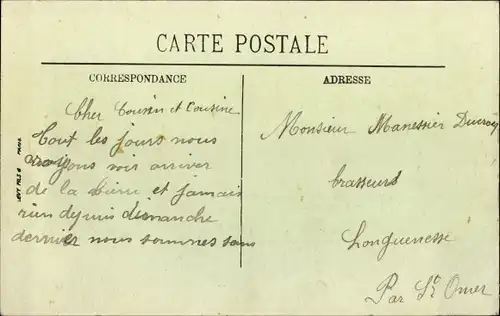 CARTE POSTALE
CORRESPONDANCE
ADRESSE
Cher Cousin et Cousine
Tout les jours nous
croyons voir arriver
de la bière et jamais
rien depuis dimanche
dernier nous sommes sans
Monsieur Manessier Ducroy
brasseurs
Longuenesse
Par St Omer
LEVY FILS & PARIS